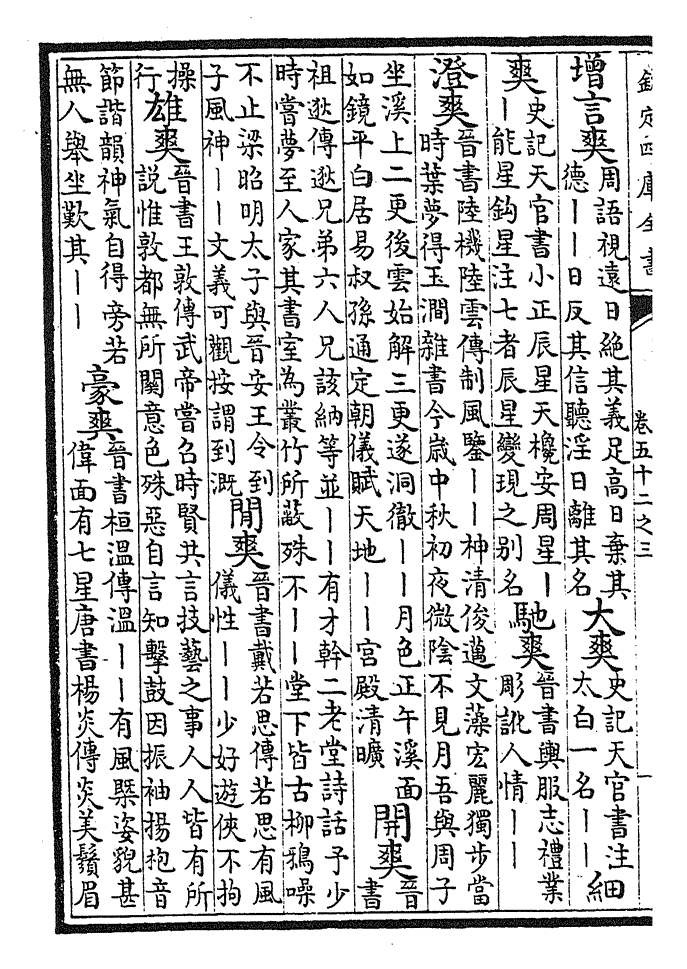 欽定四庫全書
卷五十二之三
一
增言爽
周語視遠日絕其義足高日棄其
德——日反其信聽淫日離其名
大爽
史記天官書注
太白一名——
細
爽
史記天官書小正辰星天欃安周星—
—能星鈎星注七者辰星變現之别名
馳爽
晉書輿服志禮業
彫訛人情——
澄爽
晉書陸機陸雲傳制風鑒——神清俊邁文藻宏麗獨步當
時葉夢得玉澗雜書今歲中秋初夜微陰不見月吾與周子
坐溪上二更後雲始解三更遂洞徹——月色正午溪面
如鏡平白居易叔孫通定朝儀賦天地——宮殿清曠
開爽
晉
書
祖逖傳逖兄弟六人兄該納等並——有才幹二老堂詩話予少
時嘗夢至人家其書室為叢竹所蔽殊不——堂下皆古柳鴉噪
不止梁昭明太子與晉安王令到
子風神——文義可觀按謂到溉
閒爽
晉書戴若思傳若思有風
儀性——少好遊俠不拘
操
行
雄爽
晉書王敦傳武帝嘗召時賢共言技藝之事人人皆有所
說惟敦都無所關意色殊惡自言知擊鼓因振袖揚枹音
節諧韻神氣自得旁若
無人舉坐歎其——
豪爽
晉書桓溫傳溫——有風槩姿貌甚
偉面有七星唐書楊炎傳炎美鬚眉